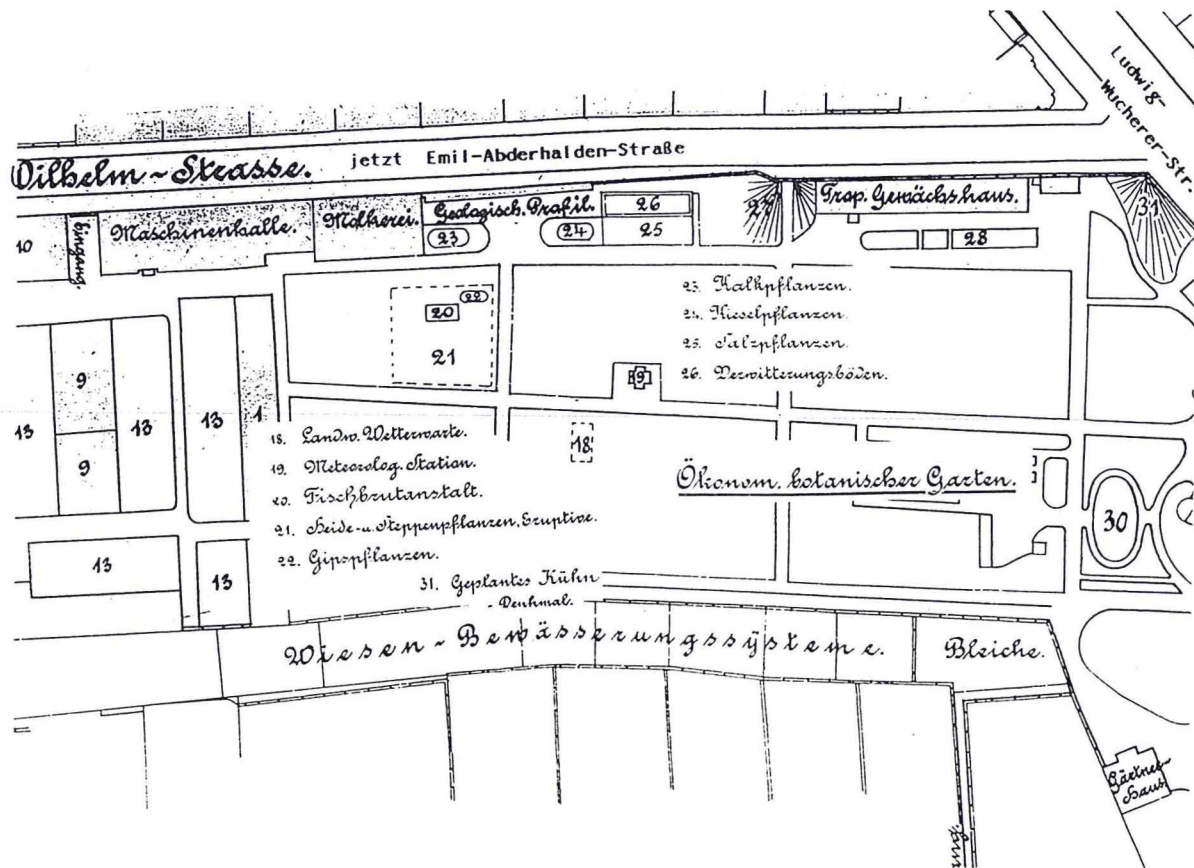 Ludwig-
Wucherer-Str.
Wilhelm-Strasse.
jetzt Emil-Abderhalden-Straße
10
Eingang.
Maschinenhalle.
Molkerei.
Geologisch. Profil.
26
27
Trop. Gewächshaus.
31
23
24
25
28
22
20
21
23. Kalkpflanzen.
24. Kieselpflanzen.
25. Salzpflanzen.
26. Verwitterungsböden.
9
19
13
13
13
1
9
18
18. Landw. Wetterwarte.
19. Meteorolog. Station.
20. Fischbrutanstalt.
21. Heide- u. Steppenpflanzen, Eruptive.
22. Gipspflanzen.
Ökonom. botanischer Garten.
30
13
13
31. Geplantes Kühn
- Denkmal.
Wiesen-Bewässerungssysteme.
Bleiche.
Gärtner-
haus